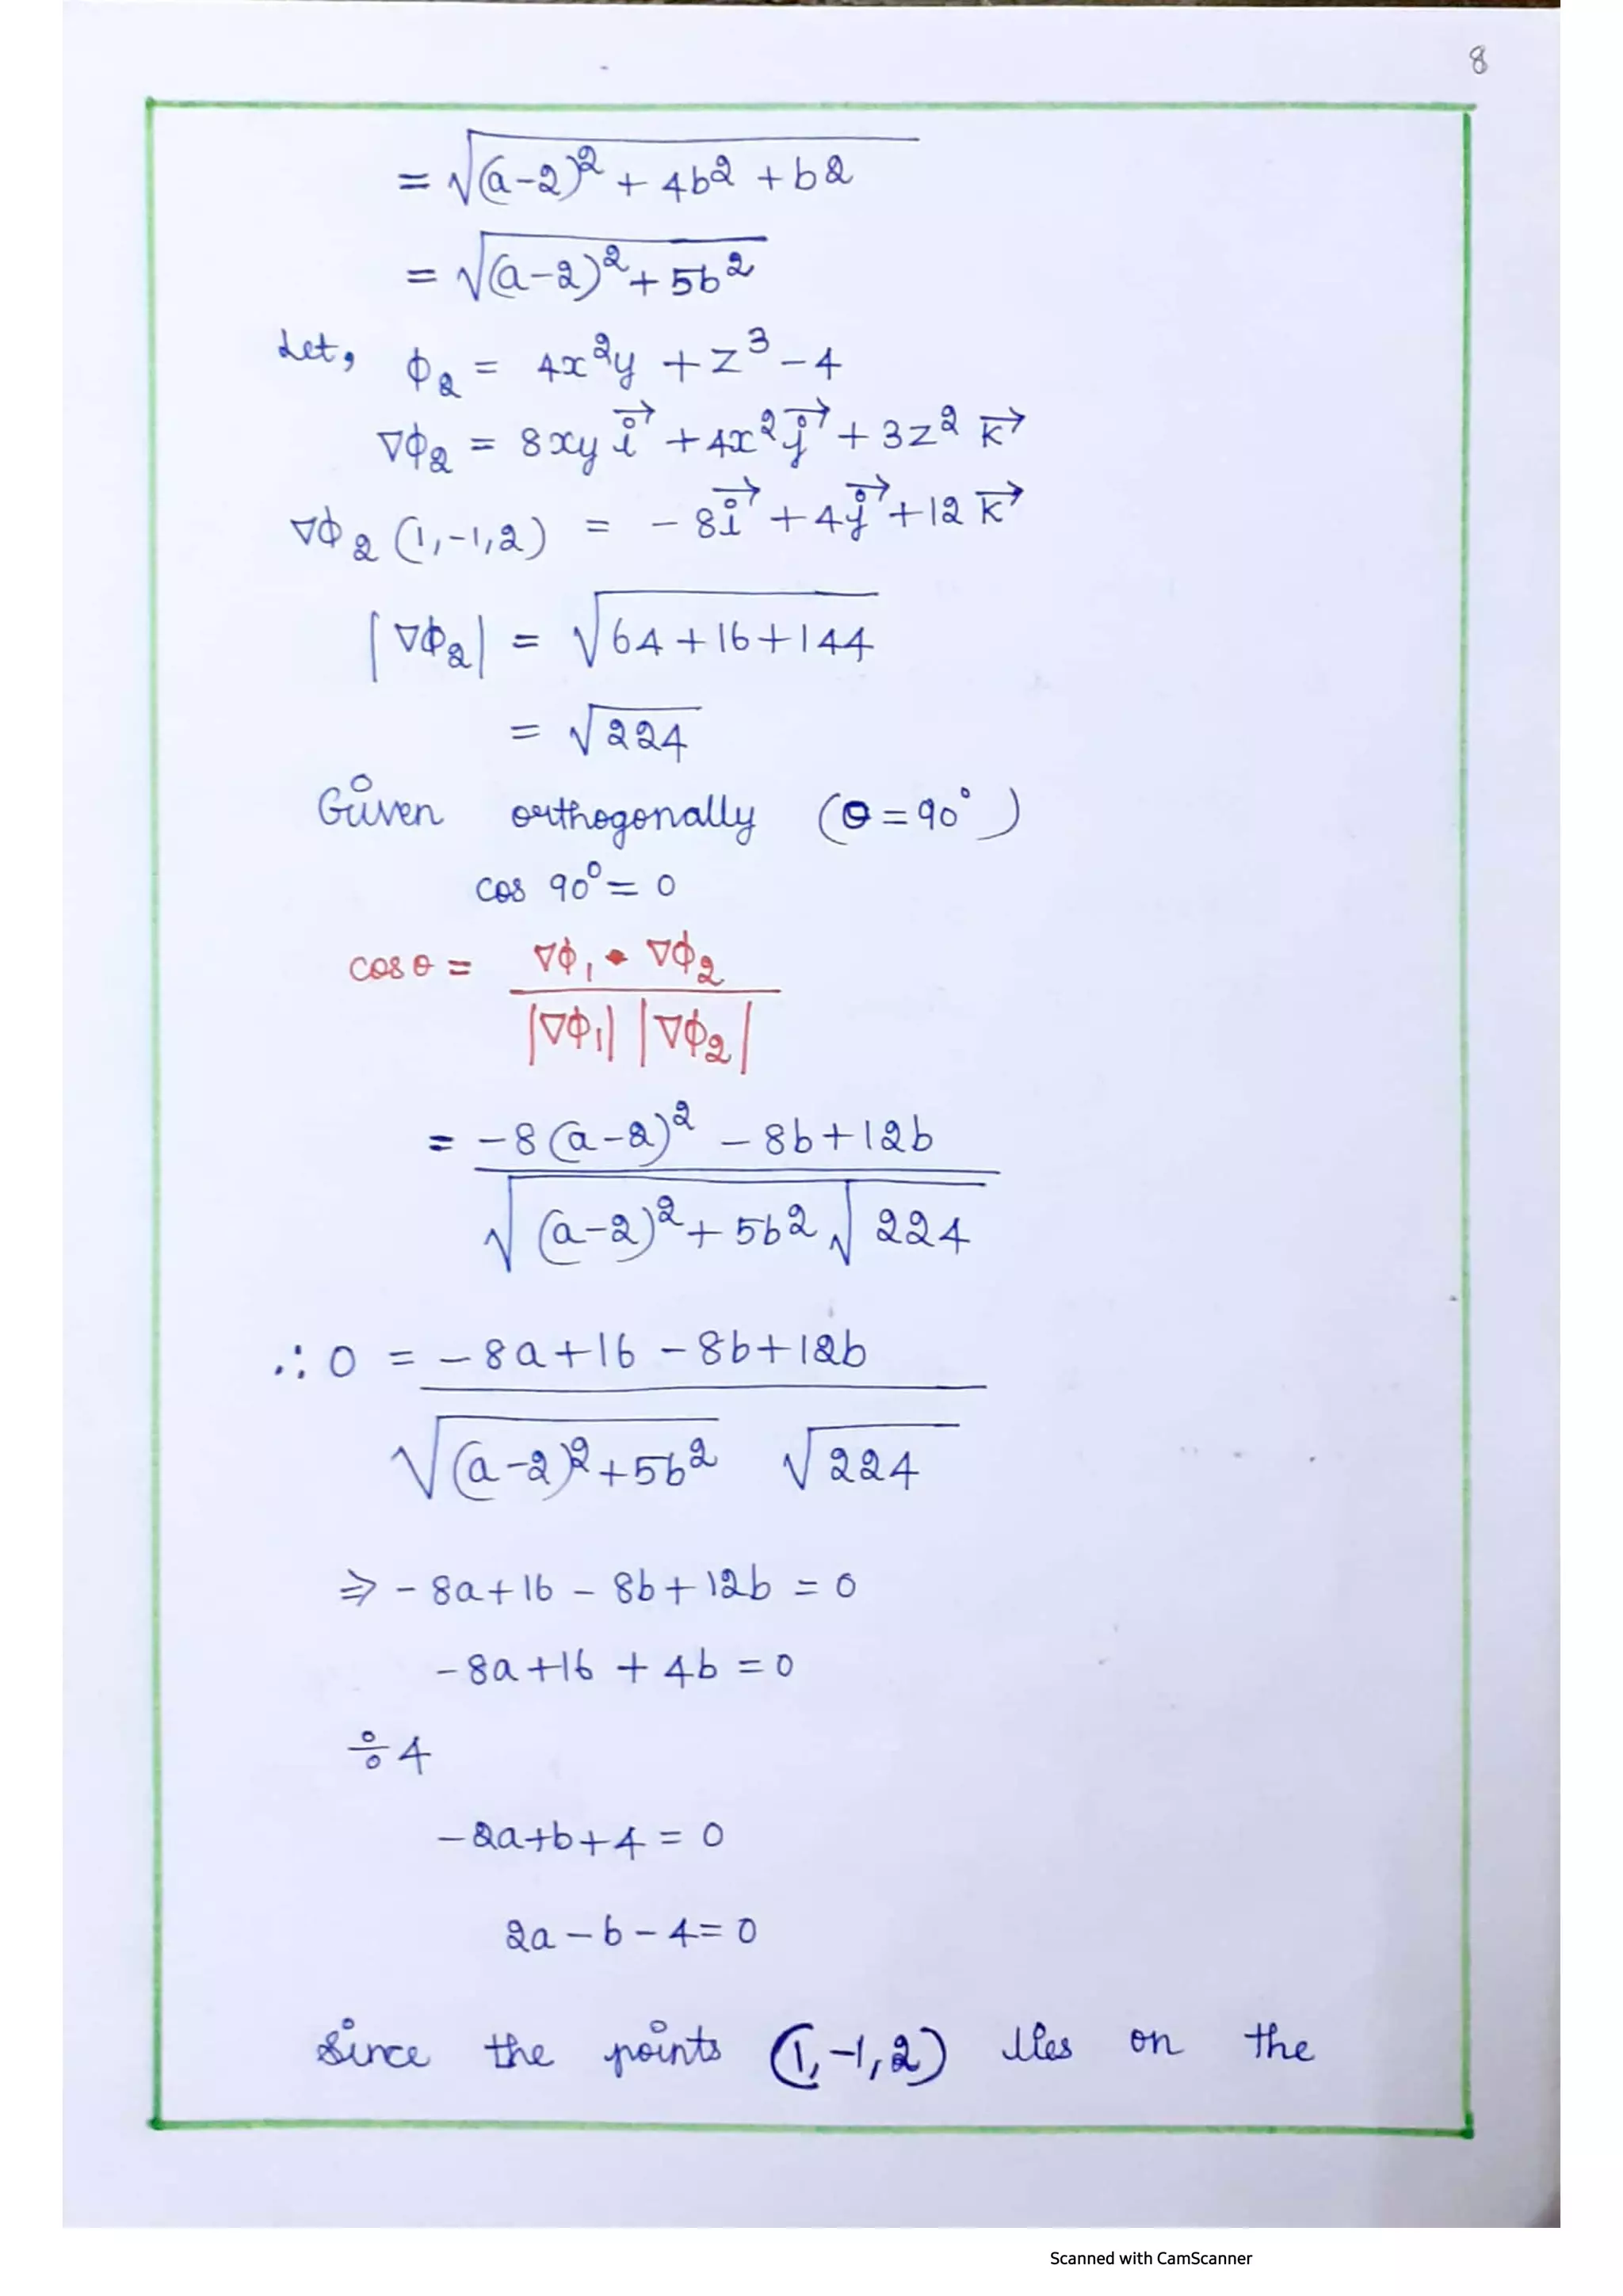 8
= √(a-2)² + 4b² + b²
= √(a-2)² + 5b²
Let, ϕ₂ = 4x²y + z³ - 4
∇ϕ₂ = 8xy i⃗ + 4x² j⃗ + 3z² k⃗
∇ϕ₂ (1,-1,2) = - 8i⃗ + 4j⃗ + 12 k⃗
|∇ϕ₂| = √64 + 16 + 144
= √224
Given orthogonally (θ = 90°)
cos 90° = 0
cos θ = ∇ϕ₁ • ∇ϕ₂
|∇ϕ₁| |∇ϕ₂|
= -8(a-2)² - 8b + 12b
√(a-2)² + 5b² √224
∴ 0 = - 8a + 16 - 8b + 12b
√(a-2)² + 5b² √224
⇒ - 8a + 16 - 8b + 12b = 0
- 8a + 16 + 4b = 0
÷ 4
- 2a + b + 4 = 0
2a - b - 4 = 0
Since the points (1,-1,2) lies on the
Scanned with CamScanner